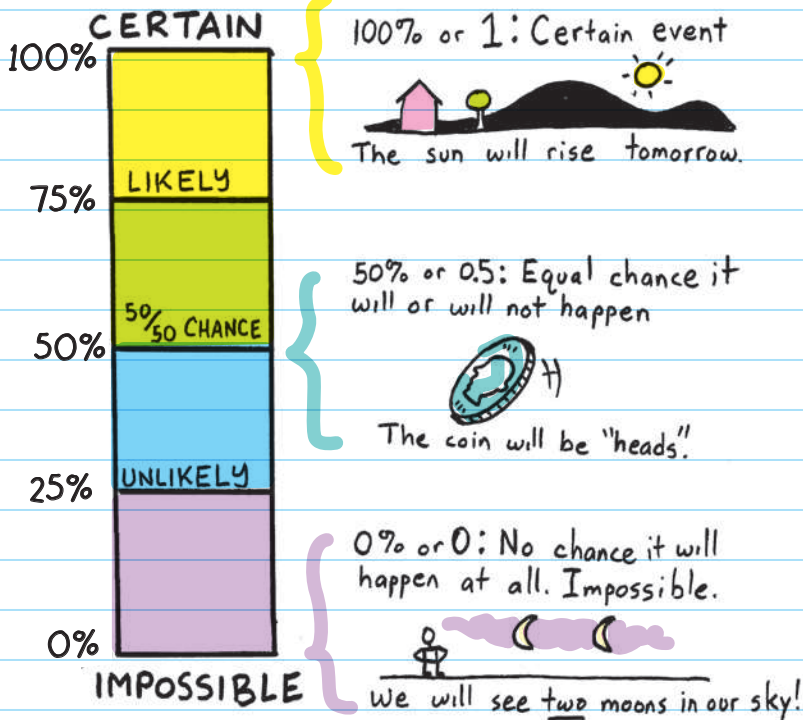 CERTAIN
100%
LIKELY
75%
50/50 CHANCE
50%
UNLIKELY
25%
0%
IMPOSSIBLE
100% or 1: Certain event
The sun will rise tomorrow.
50% or 0.5: Equal chance it
will or will not happen
H
The coin will be "heads".
0% or 0: No chance it will
happen at all. Impossible.
We will see two moons in our sky!